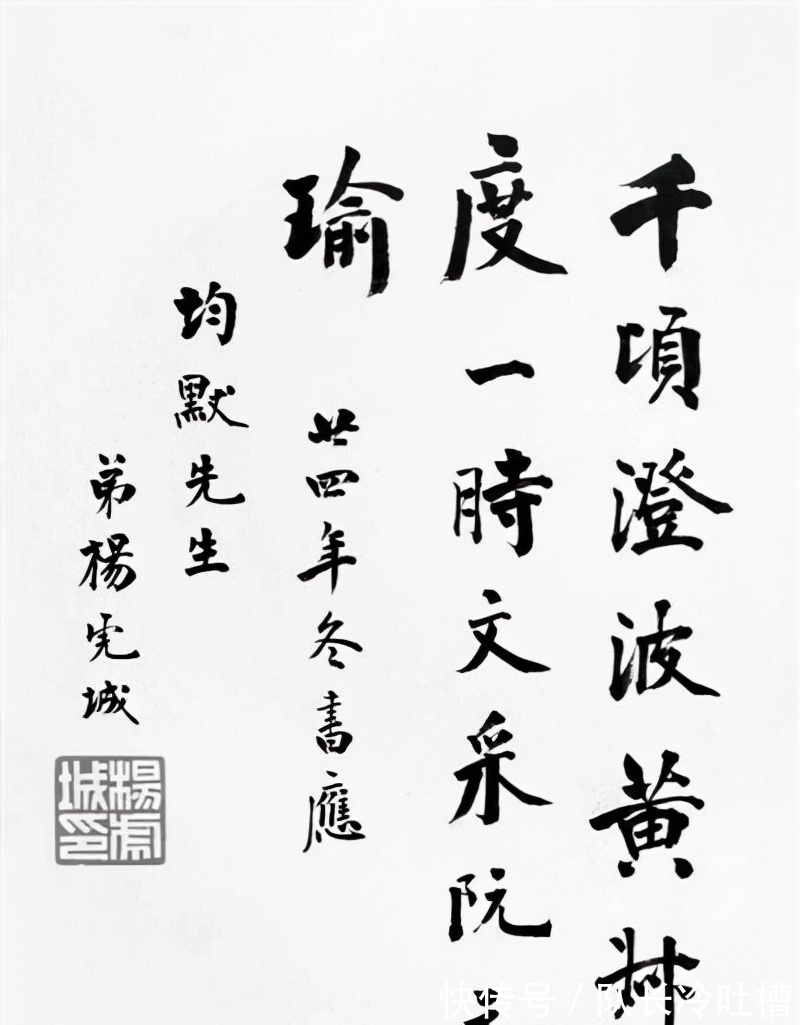 千頃澄波黄
度一時文采阮
瑜 廿四年冬書應
均默先生
弟楊虎城
楊虎城印
快传号 / 队长冷吐槽